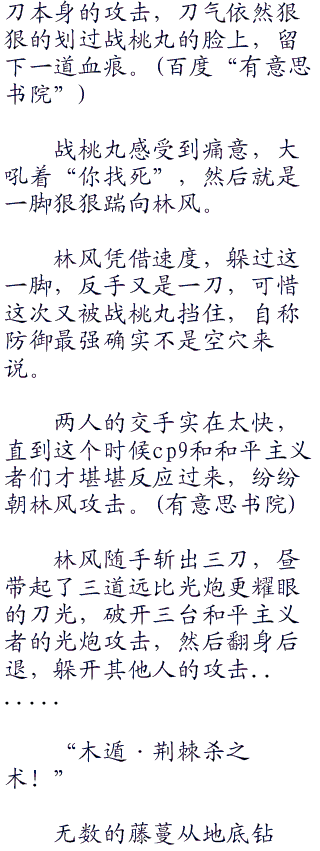 刀本身的攻击，刀气依然狠
狠的划过战桃丸的脸上，留
下一道血痕。(百度“有意思
书院”)
战桃丸感受到痛意，大
吼着“你找死”，然后就是
一脚狠狠踹向林风。
林风凭借速度，躲过这
一脚，反手又是一刀，可惜
这次又被战桃丸挡住，自称
防御最强确实不是空穴来
说。
两人的交手实在太快，
直到这个时候cp9和和平主义
者们才堪堪反应过来，纷纷
朝林风攻击。(有意思书院)
林风随手斩出三刀，昼
带起了三道远比光炮更耀眼
的刀光，破开三台和平主义
者的光炮攻击，然后翻身后
退，躲开其他人的攻击..
.....
“木遁·荆棘杀之
术！”
无数的藤蔓从地底钻